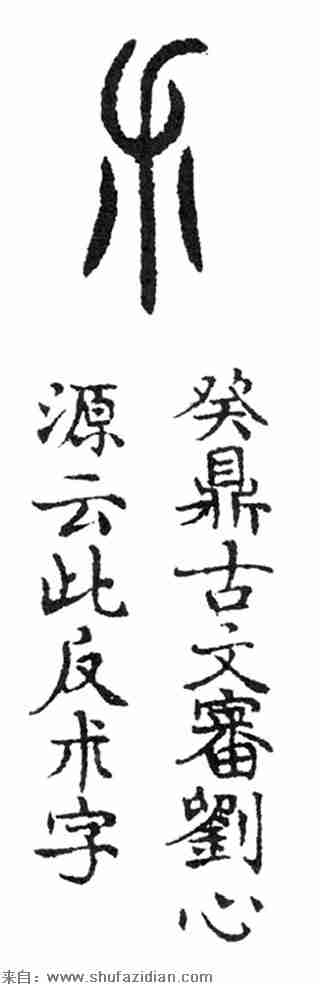 癸鼎古文審劉心
源云此反朮字
来自：www.shufazidian.com